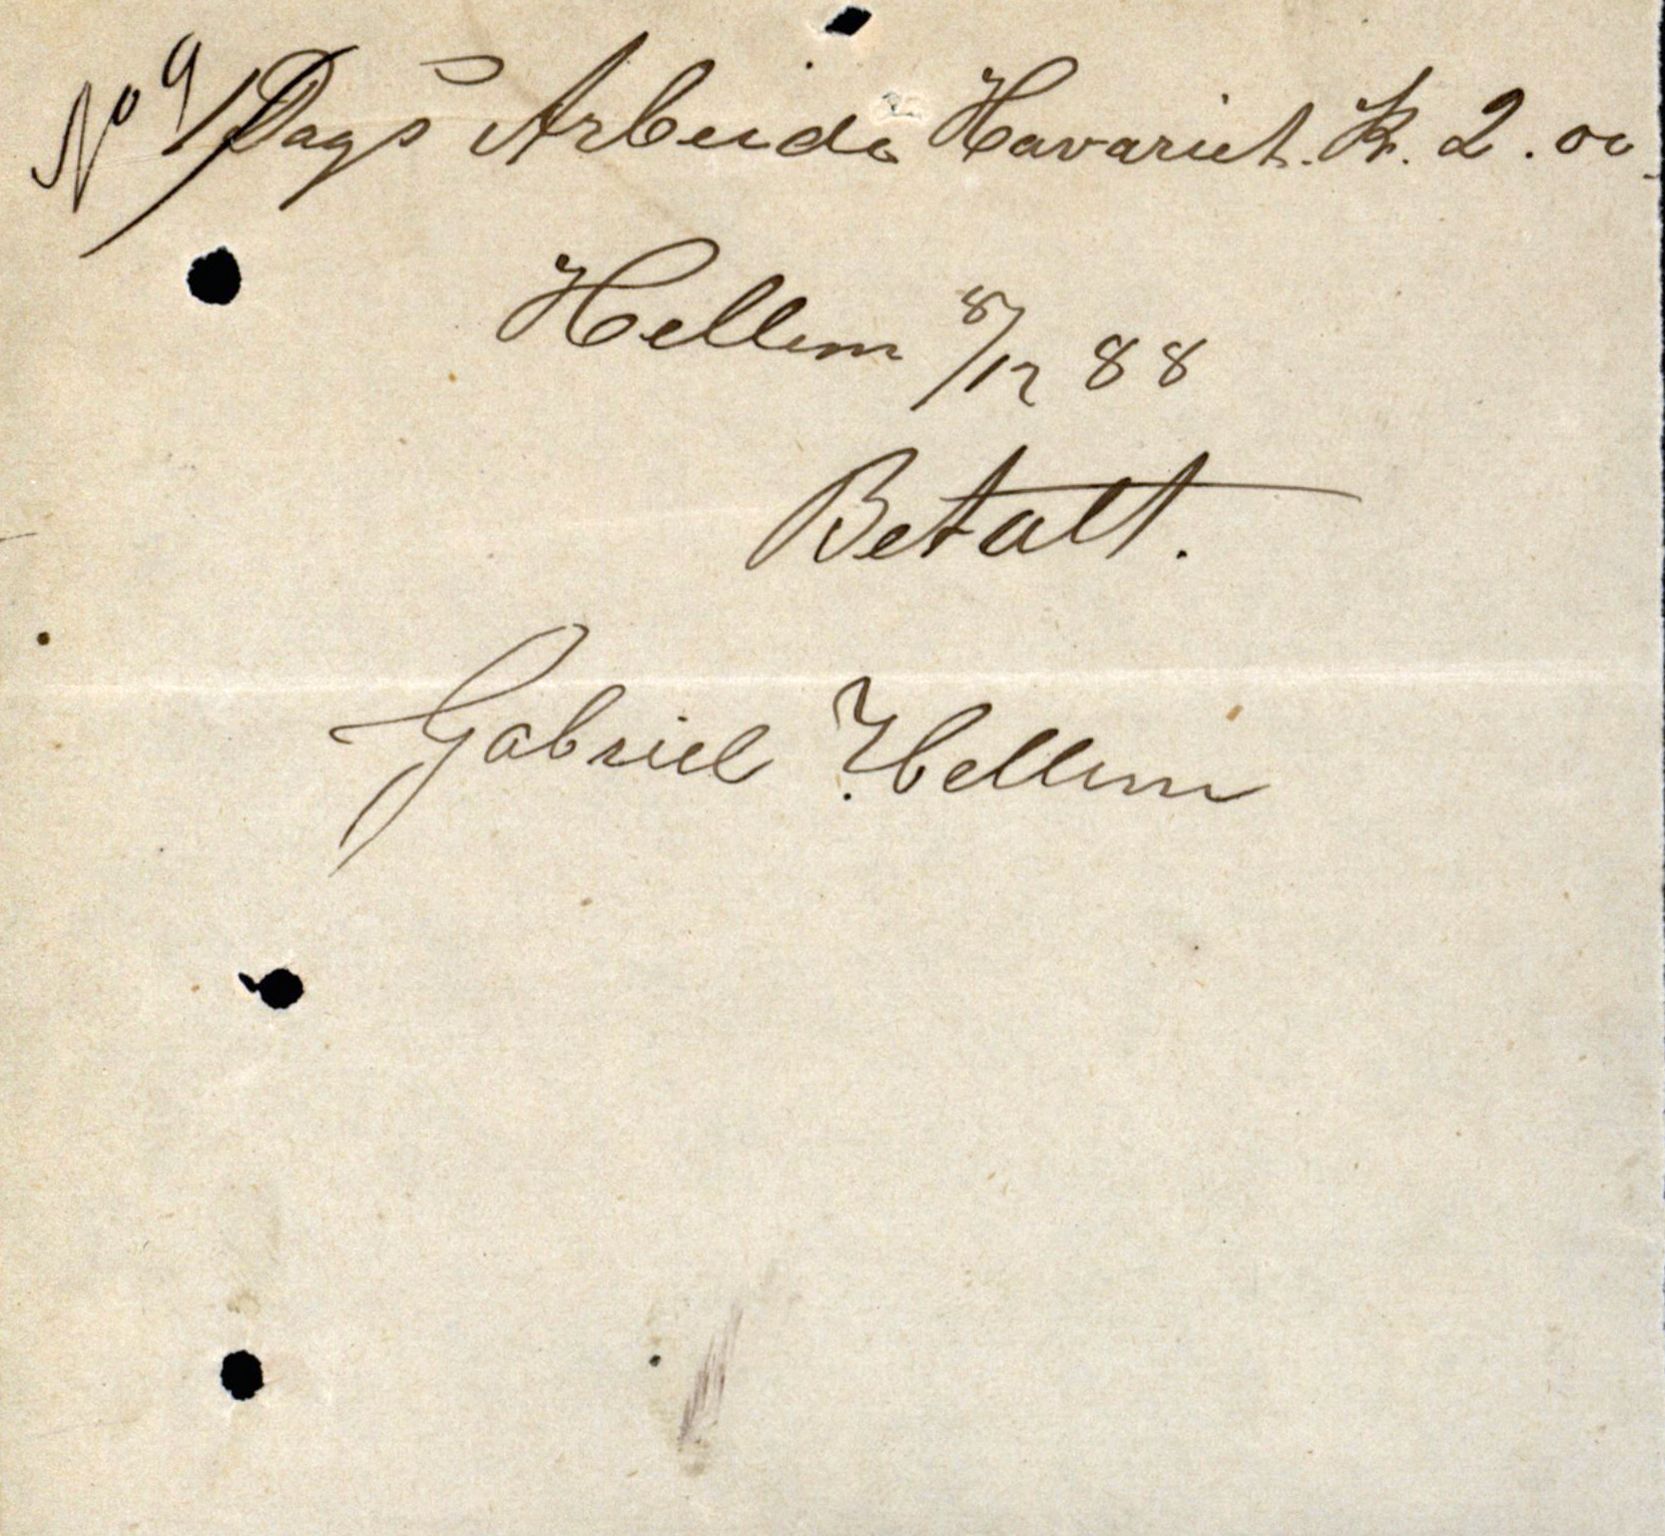 No 9 1 Dags Arbeide Havariet. Kr. 2.00
Hellem 8/12 88
Betalt.
Gabriel Hellem